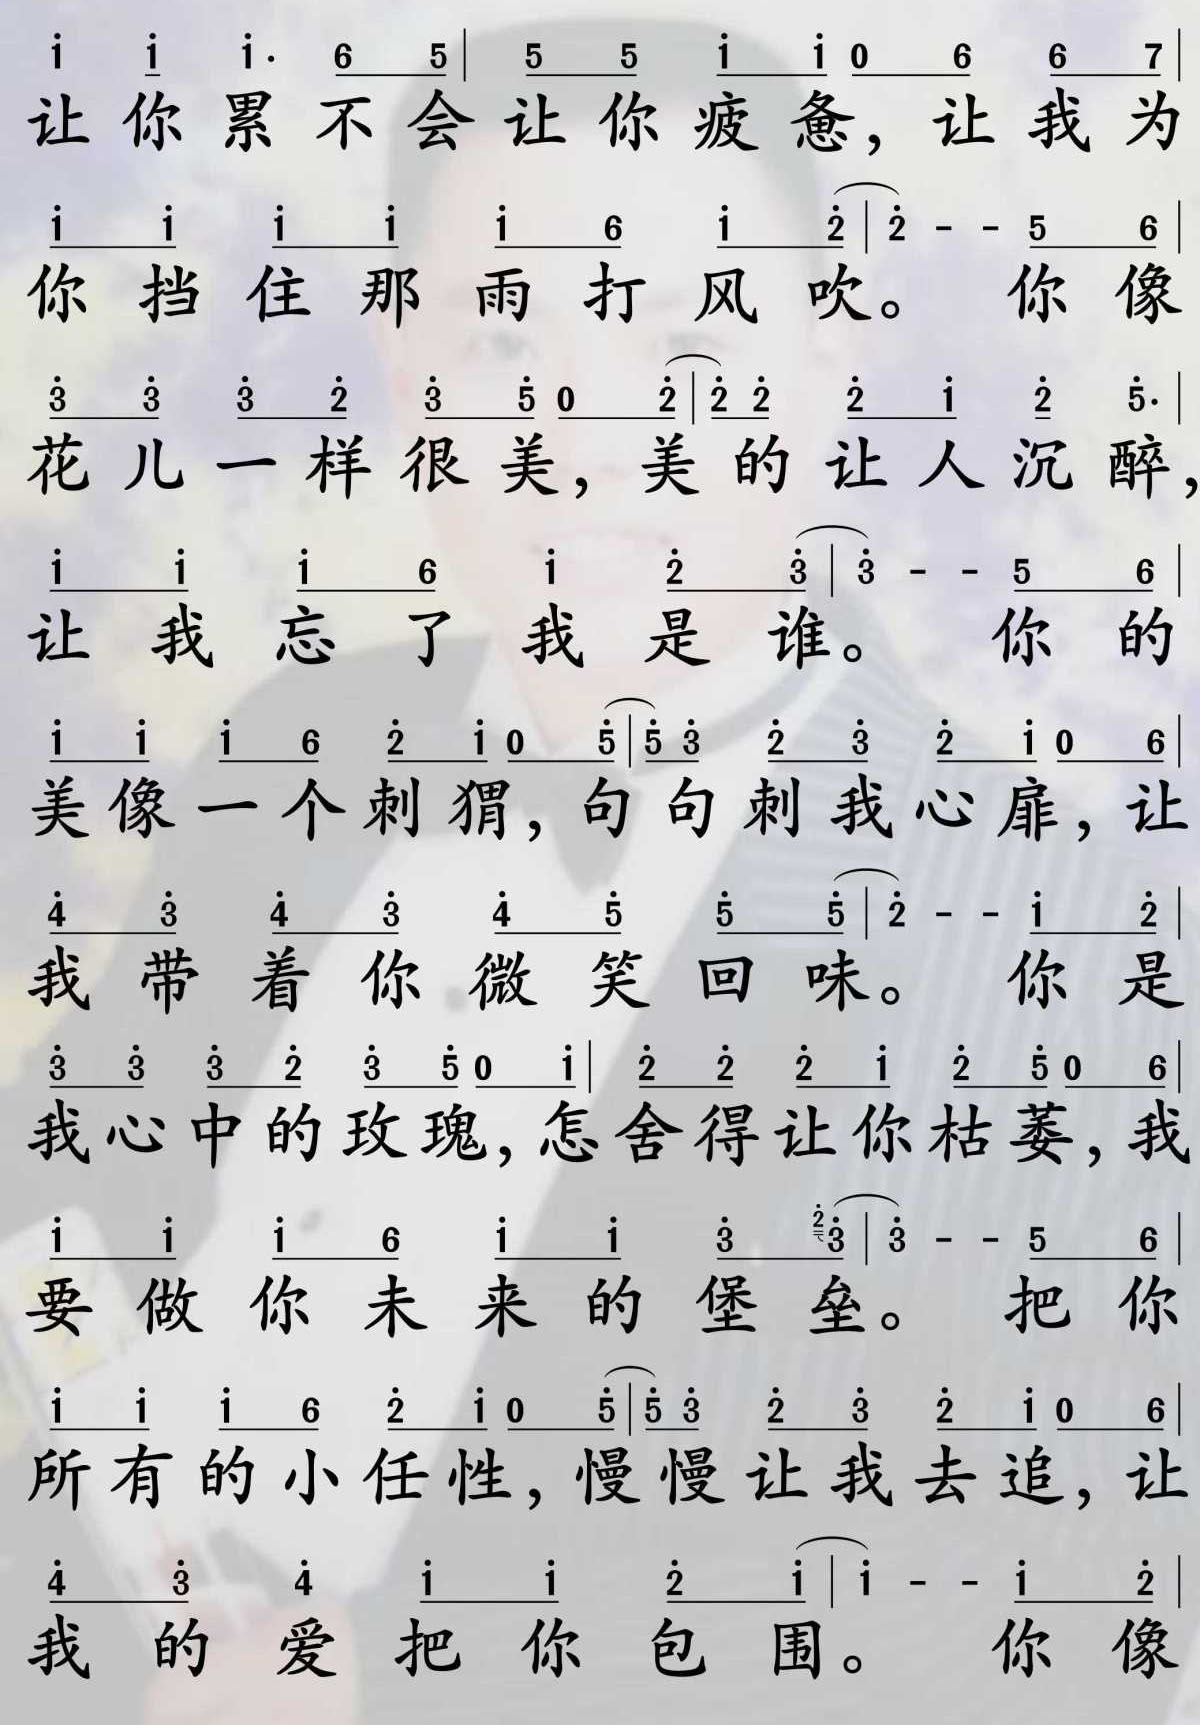 1̇ 1̇ 1̇· 6 5 | 5 5 1̇ 1̇ 0 6 6 7 |
让你累不会让你疲惫，让我为
1̇ 1̇ 1̇ 1̇ 1̇ 6 1̇ 2̇ | 2̇ - - 5 6 |
你挡住那雨打风吹。你像
3̇ 3̇ 3̇ 2̇ 3̇ 5̇ 0 2̇ | 2̇ 2̇ 2̇ 1̇ 2̇ 5̇· |
花儿一样很美，美的让人沉醉，
1̇ 1̇ 1̇ 6 1̇ 2̇ 3̇ | 3̇ - - 5 6 |
让我忘了我是谁。你的
1̇ 1̇ 1̇ 6 2̇ 1̇ 0 5̇ | 5̇ 3̇ 2̇ 3̇ 2̇ 1̇ 0 6 |
美像一个刺猬，句句刺我心扉，让
4̇ 3̇ 4̇ 3̇ 4̇ 5̇ 5̇ 5̇ | 2̇ - - 1̇ 2̇ |
我带着你微笑回味。你是
3̇ 3̇ 3̇ 2̇ 3̇ 5̇ 0 1̇ | 2̇ 2̇ 2̇ 1̇ 2̇ 5̇ 0 6 |
我心中的玫瑰，怎舍得让你枯萎，我
1̇ 1̇ 1̇ 6 1̇ 1̇ 3̇ 2̇ 3̇ | 3̇ - - 5 6 |
要做你未来的堡垒。把你
1̇ 1̇ 1̇ 6 2̇ 1̇ 0 5̇ | 5̇ 3̇ 2̇ 3̇ 2̇ 1̇ 0 6 |
所有的小任性，慢慢让我去追，让
4̇ 3̇ 4̇ 1̇ 1̇ 2̇ 1̇ | 1̇ - - 1̇ 2̇ |
我的爱把你包围。你像